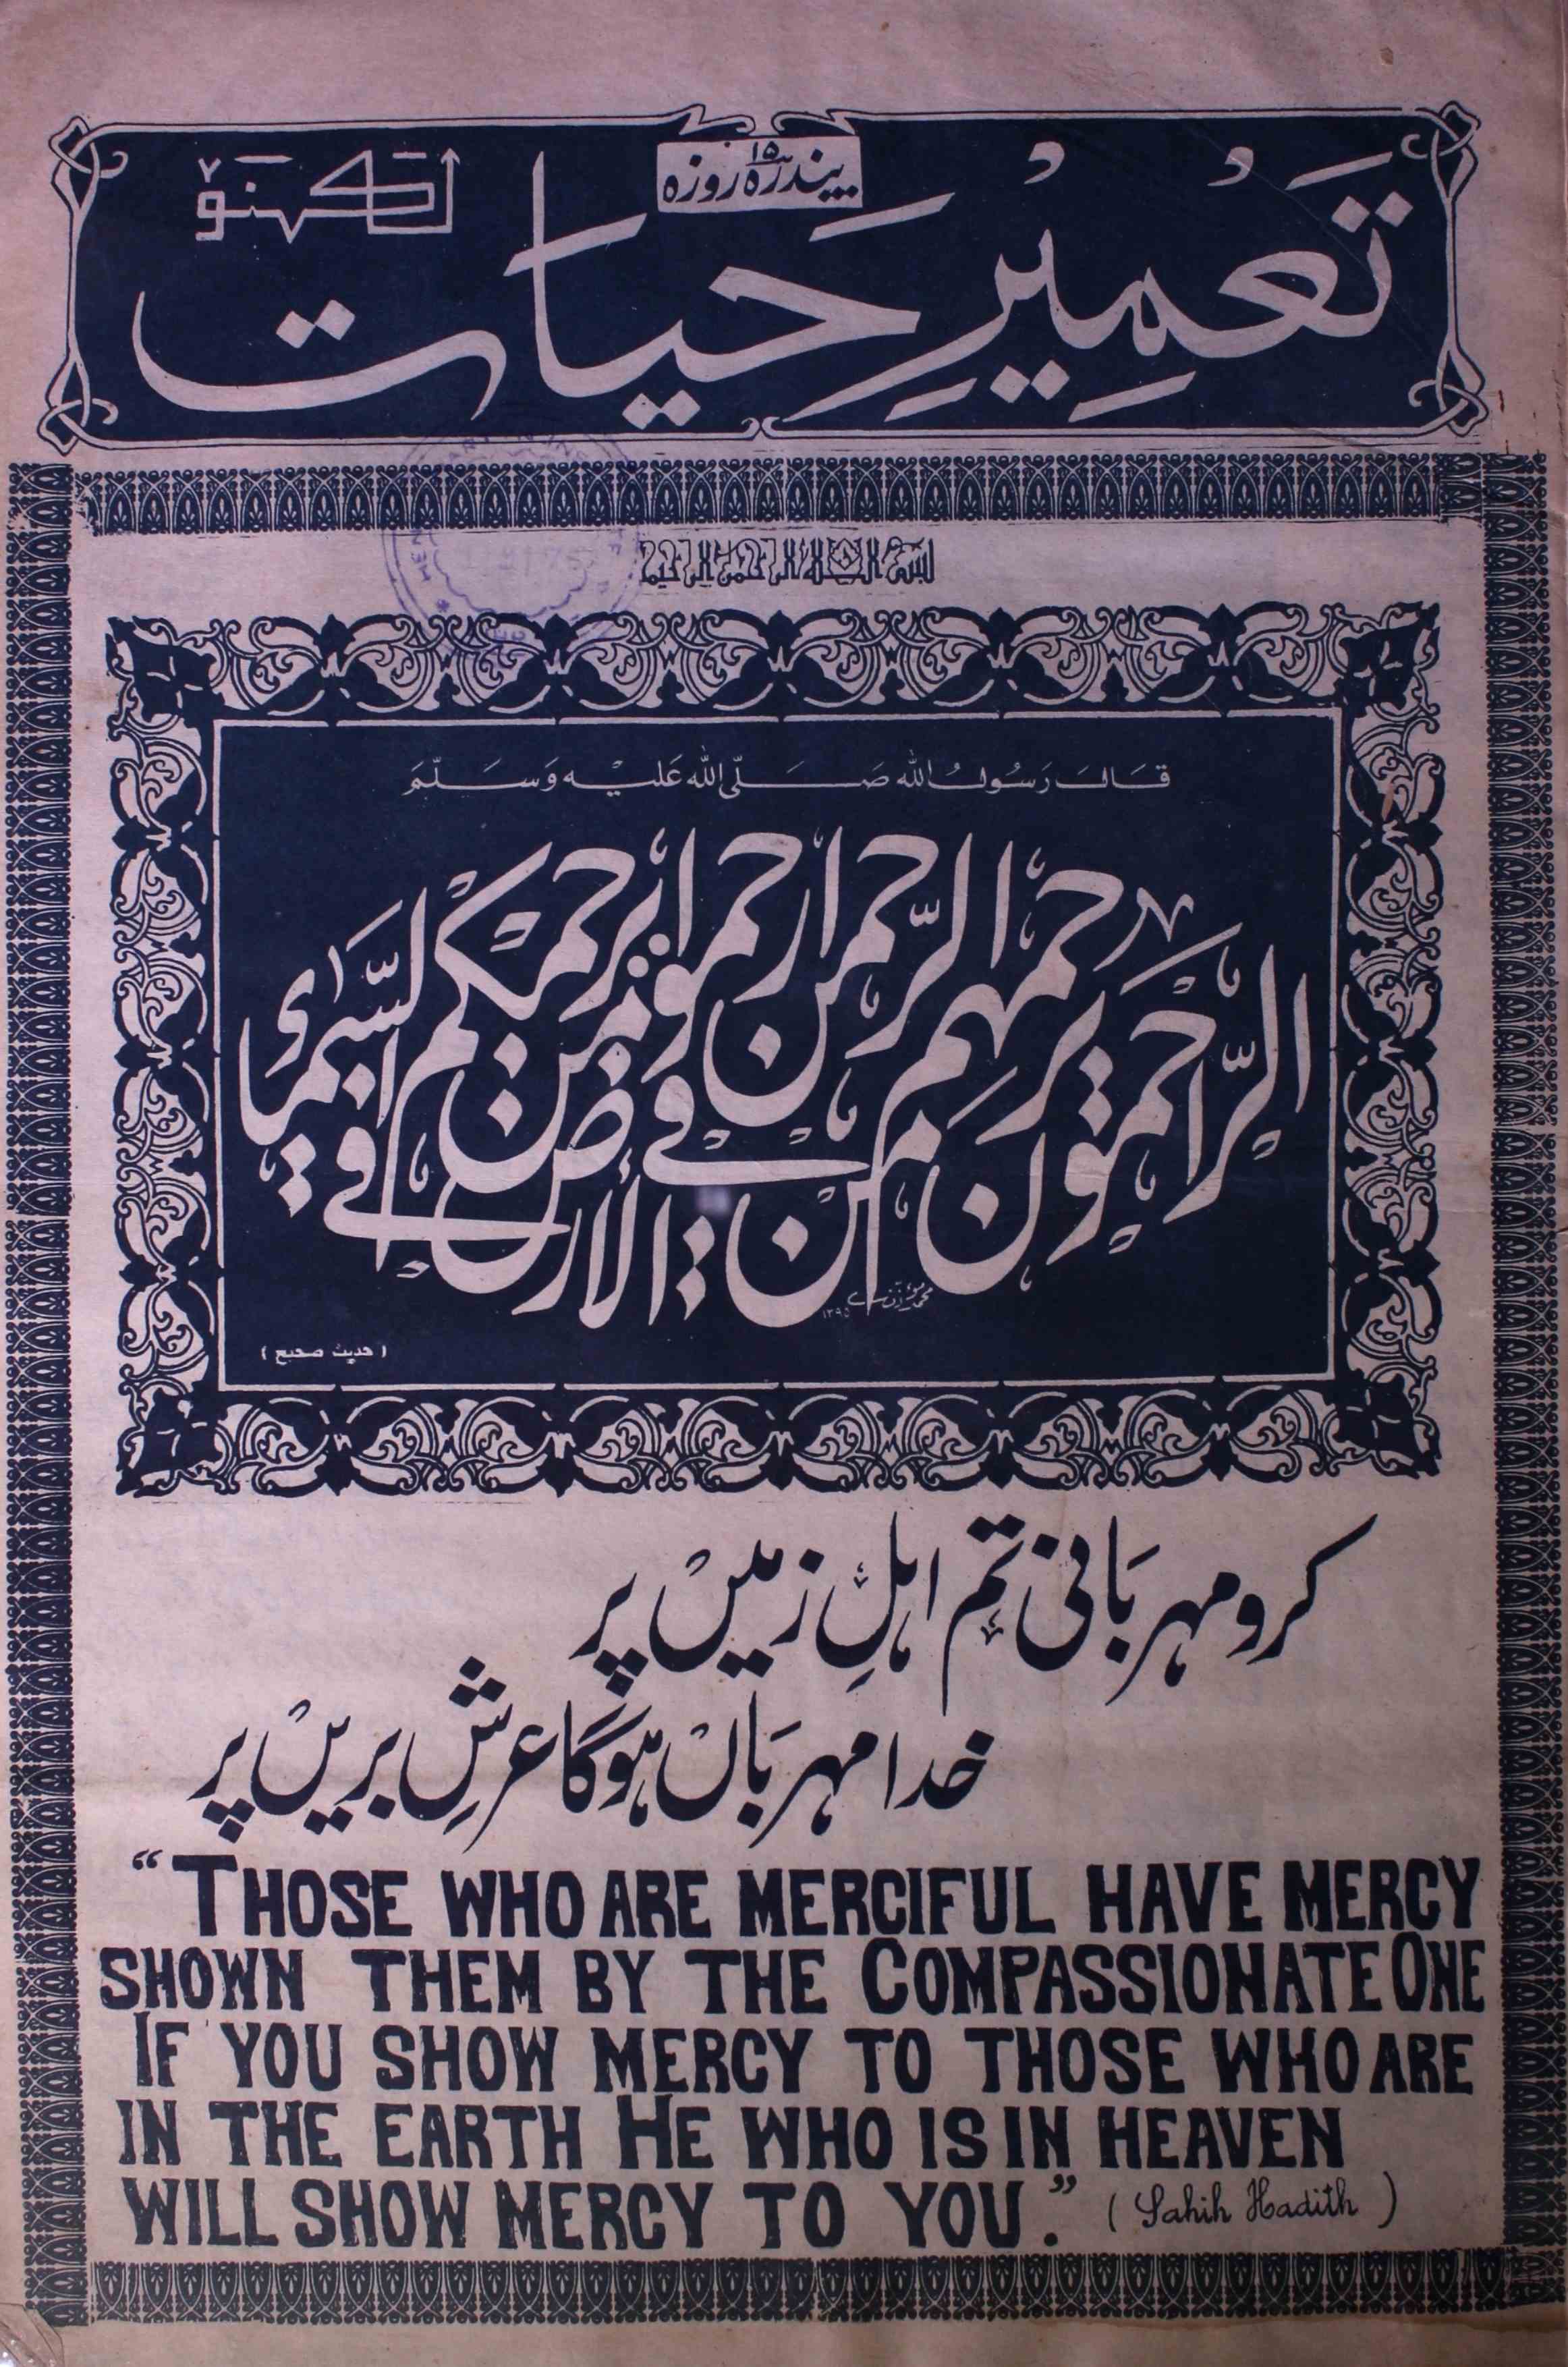 پندرہ ۱۵ روزہ
تَعمِیرِ حَیات
لکھنؤ
بسم الله الرحمن الرحيم
قَالَ رَسُولُ اللّٰه صَلَّى اللّٰه عَلَيْه وَسَلَّمَ
الرَّاحمُون يرحمهم الرَّحمٰن ارحموا من في الأرض يرحمكم من في السَّماء
۱۳۹۵
( حديث صحيح )
کرو مہربانی تم اہلِ زمیں پر
خدا مہرباں ہوگا عرشِ بریں پر
“THOSE WHO ARE MERCIFUL HAVE MERCY
SHOWN THEM BY THE COMPASSIONATE ONE
IF YOU SHOW MERCY TO THOSE WHO ARE
IN THE EARTH HE WHO IS IN HEAVEN
WILL SHOW MERCY TO YOU.” (Sahih Hadith)